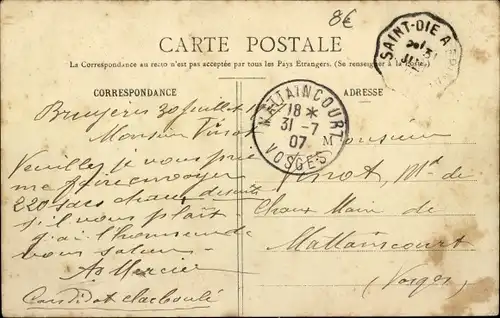 8€
CARTE POSTALE
La Correspondance au recto n'est pas acceptée par tous les Pays Etrangers. (Se renseigner à la Poste)
SAINT-DIE A
CORRESPONDANCE
ADRESSE
MATTAINCOURT
18 *
31 -7
07
VOSGES
Bruyères 30 juillet
Monsieur
Veuillez je vous prie
me faire envoyer
220 sacs chaux de suite
s'il vous plaît
j'ai l'honneur de
vous saluer
A Mercier
Monsieur
M
Md de
Chaux
de
Mattaincourt
(Vosges)